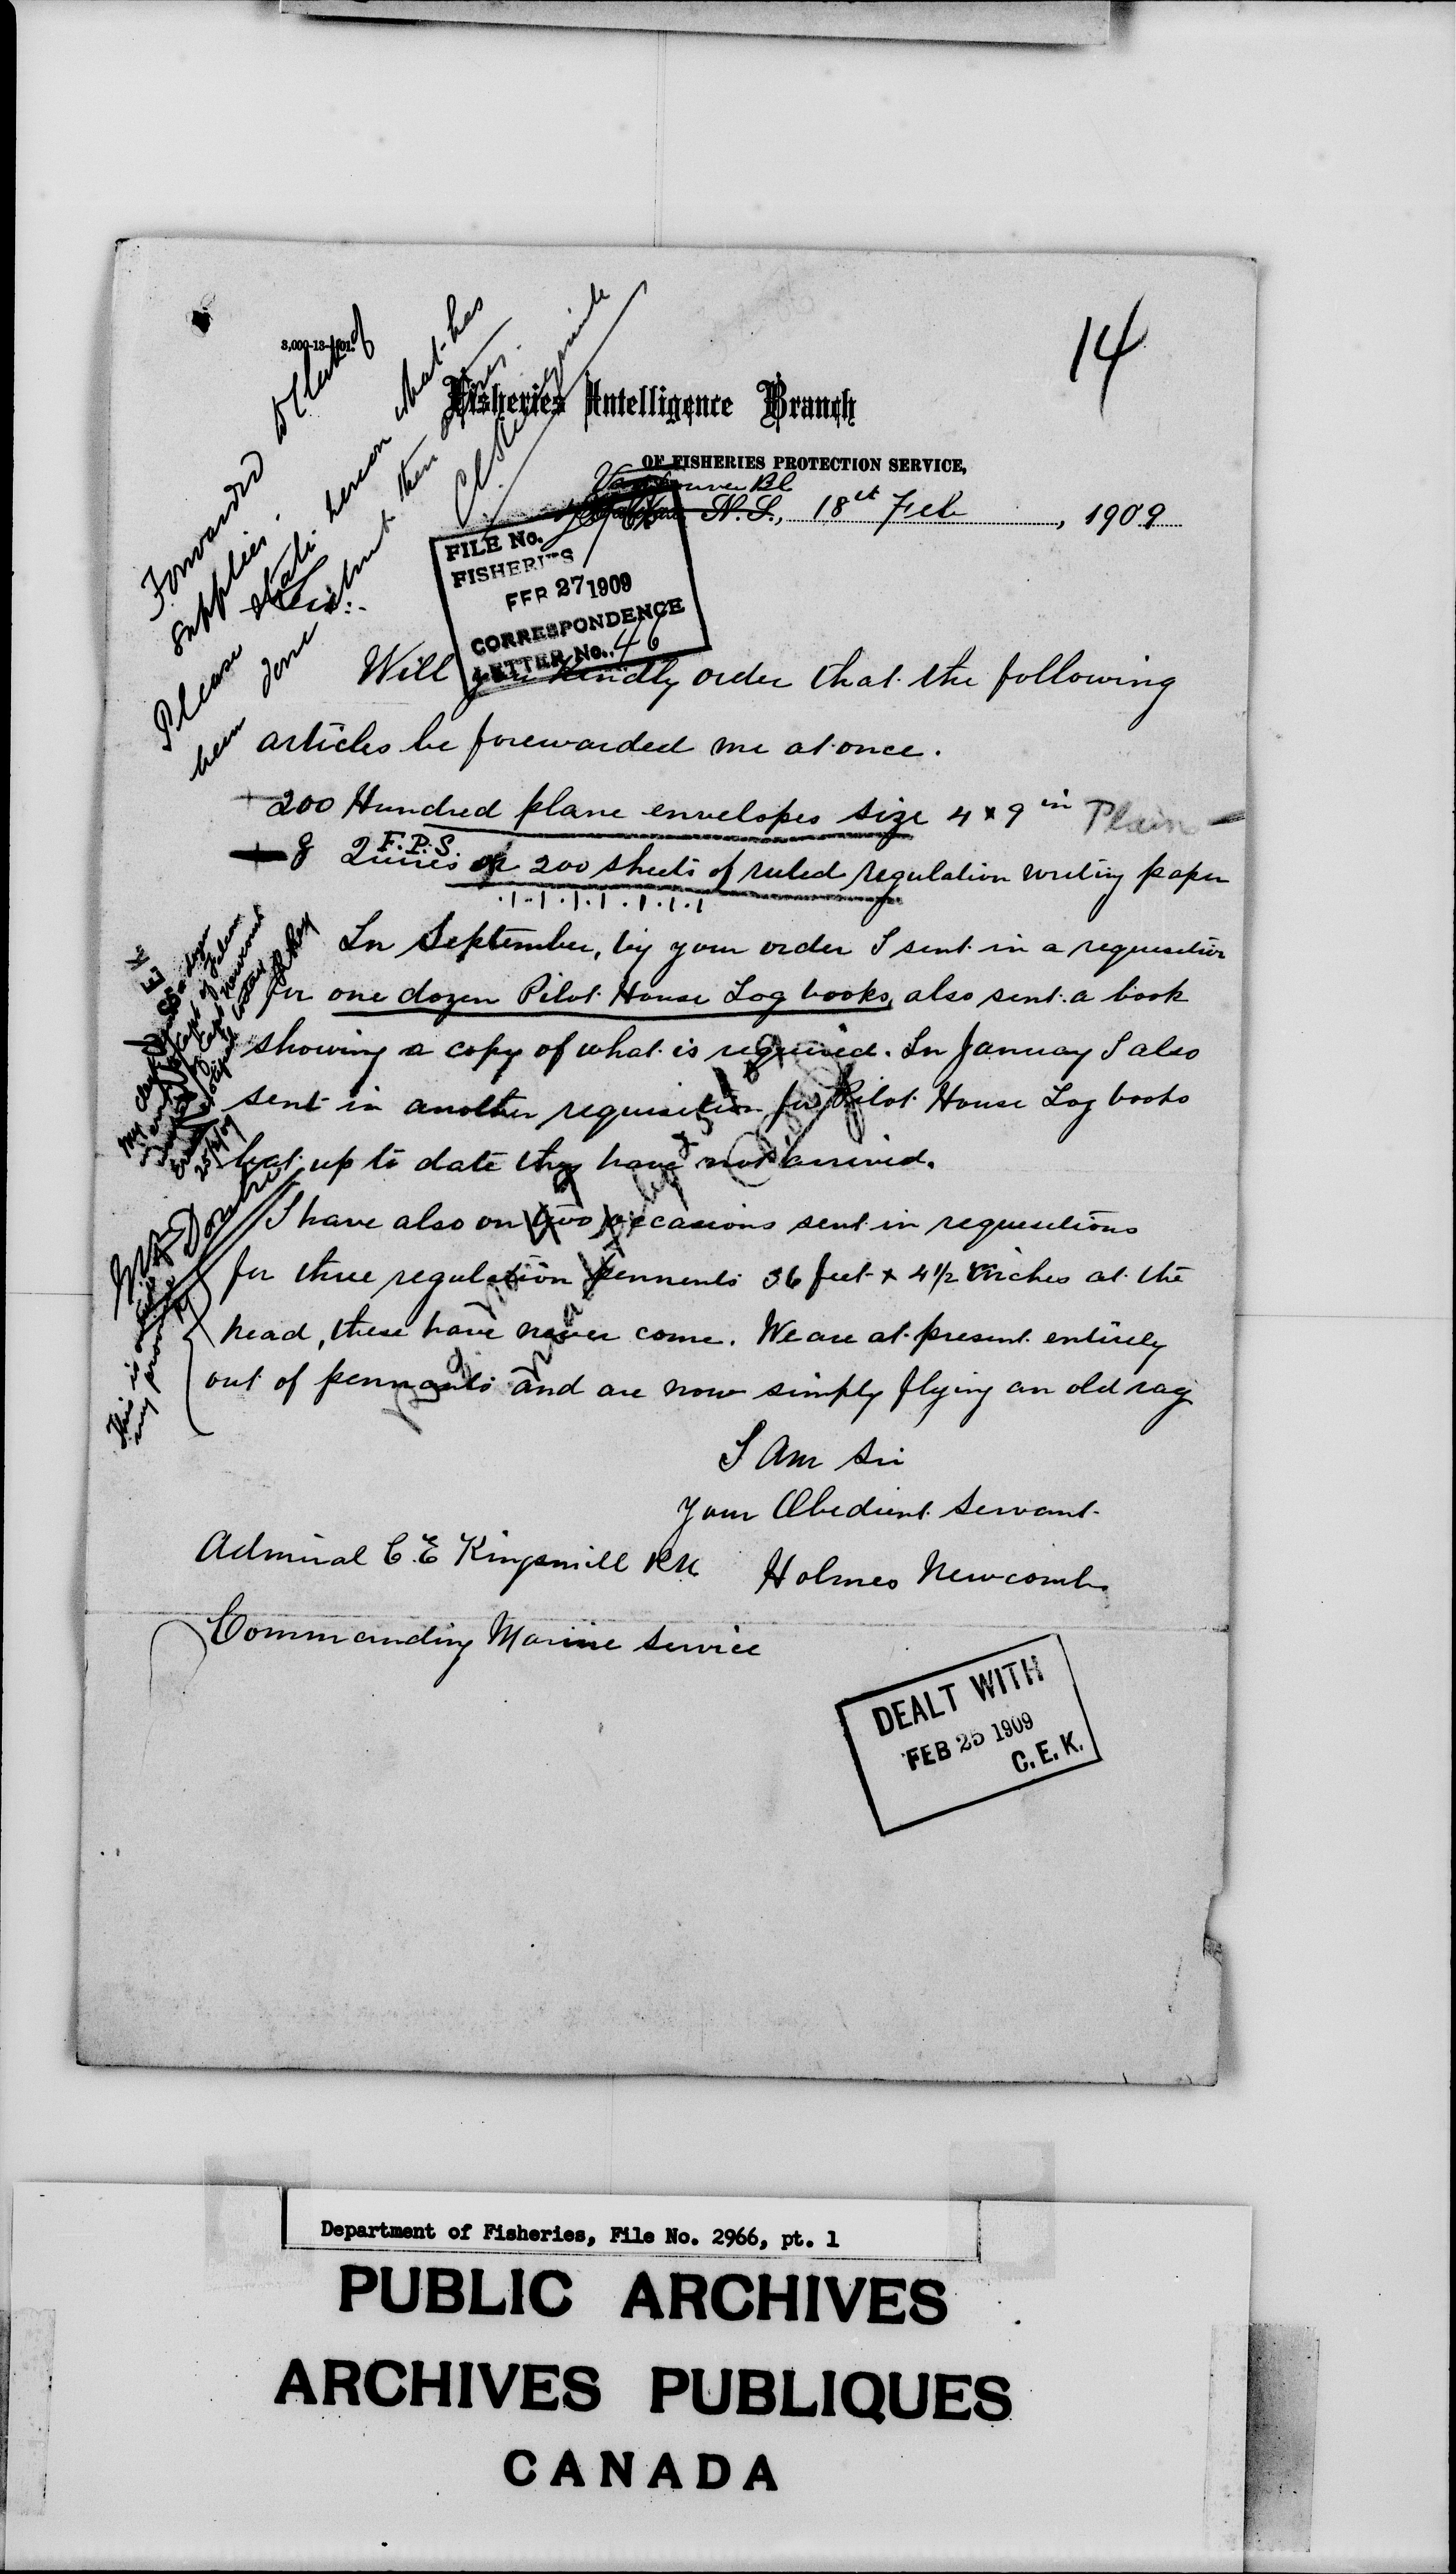 14
3,000-13-
Forwarded to Clerk of
Supplies.
Please state hereon what has
been done about these
Fisheries Intelligence Branch
OF FISHERIES PROTECTION SERVICE,
Vancouver BC
Halifax N.S., 18th Feb, 1909
FILE No.
FISHERIES
FEB 27 1909
CORRESPONDENCE
LETTER No. 46
Sir:-
Will you kindly order that the following
articles be forewarded me at once.
+ 200 Hundred plane envelopes size 4 x 9 in Plain
+ 8 Quires F.P.S. or 200 sheets of ruled regulation writing paper
In September, by your order I sent in a requesition
for one dozen Pilot House Log books, also sent a book
showing a copy of what is required. In January I also
sent in another requisition for Pilot House Log books
but up to date they have not arrived.
I have also on two occasions sent in requesitions
for three regulation pennents 36 feet x 4 1/2 inches at the
head, these have never come. We are at present entirely
out of pennants and are now simply flying an old rag
I Am Sir
Your Obedient Servant
Admiral C. E Kingsmill RN
Holmes Newcomb
Commanding Marine Service
25/2/09
This is
my
DEALT WITH
FEB 25 1909
C. E. K.
Department of Fisheries, File No. 2966, pt. 1
PUBLIC ARCHIVES
ARCHIVES PUBLIQUES
CANADA